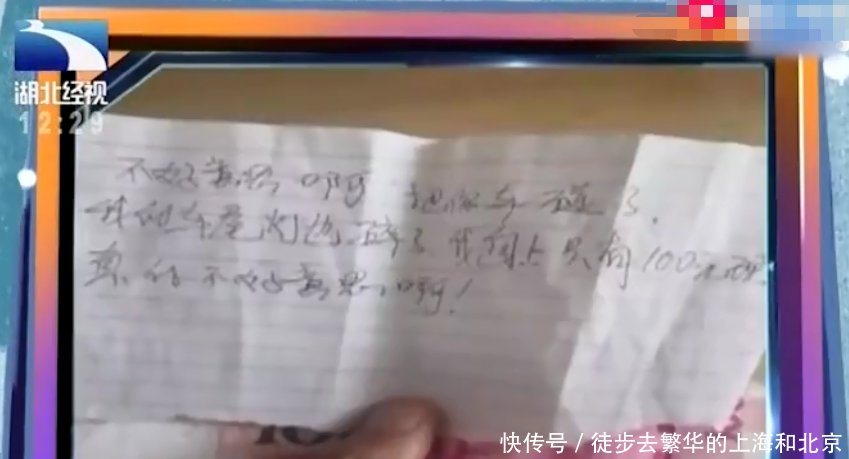 湖北经视
12:29
不好意思啊 把你车碰了.
我的车尾灯也碎了 我身上只有100元
真的不好意思啊!
快传号 / 徒步去繁华的上海和北京